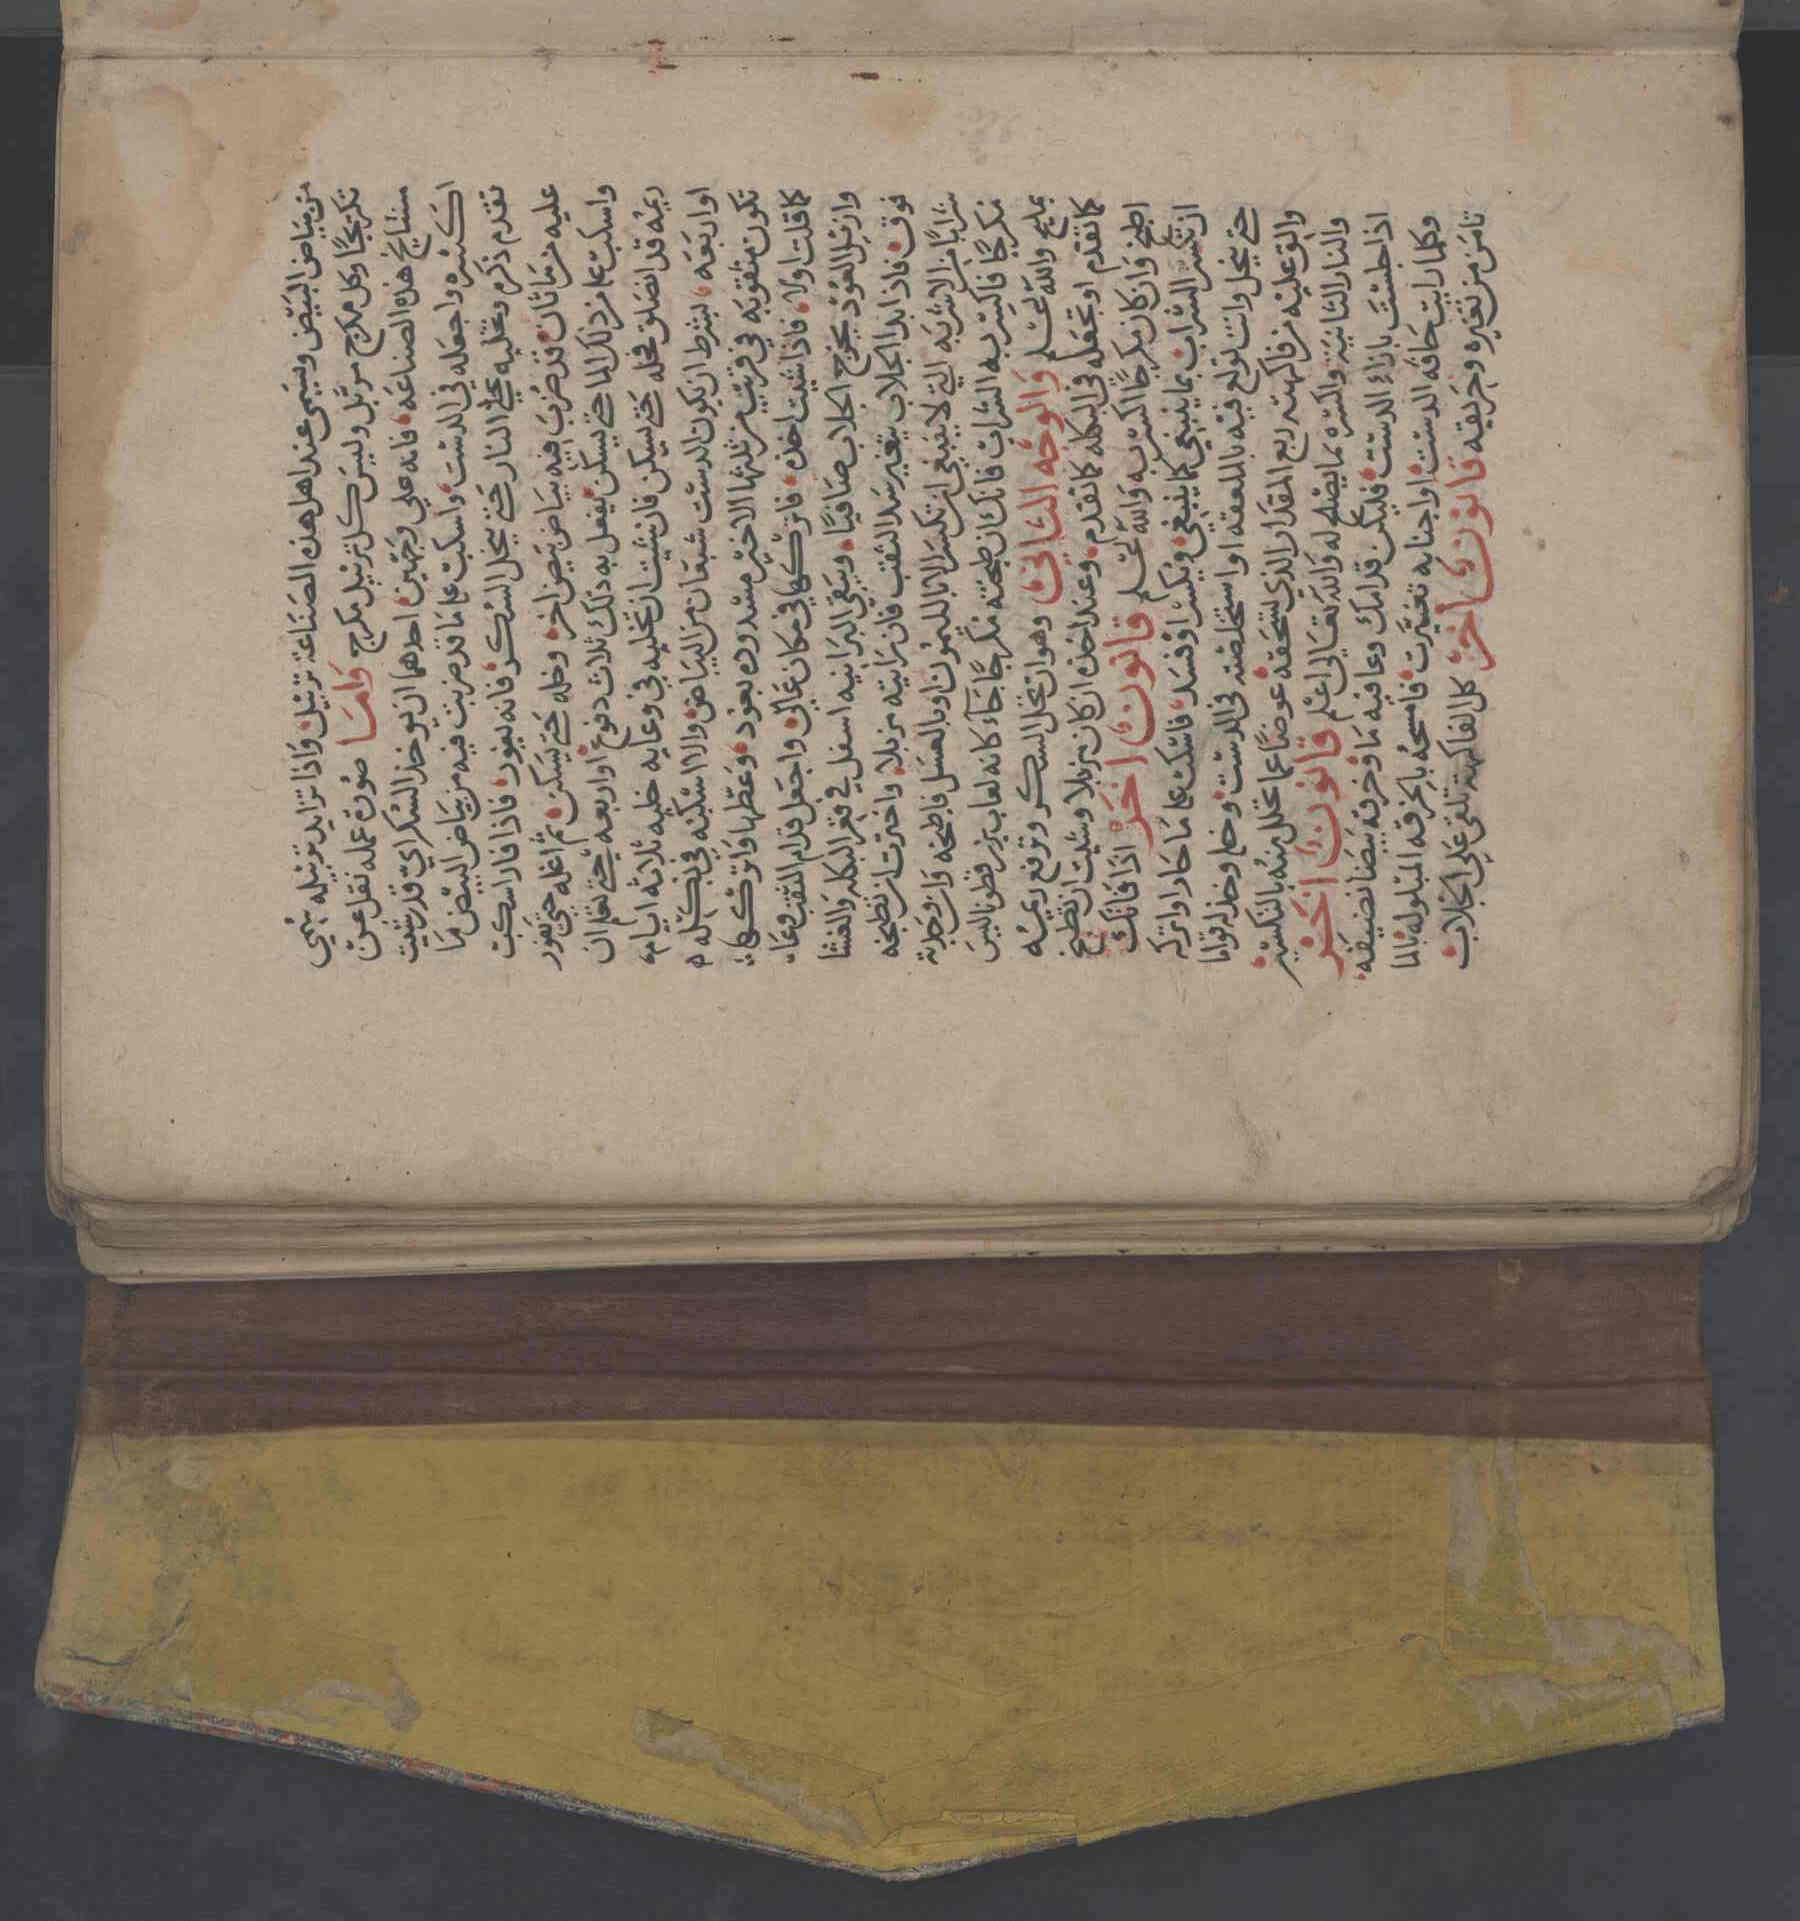 من بياض البيض ويسمى عند اهل هذه الصناعة تزبيل واذا تزايد تزبيله سمي
تكرجًا وكل مكرج مزبل وليس كل تزبيل مكرج وامـا صورة عمله نقل عن
مشايخ هذه الصناعه فانه على وجهين احدهما ان يوخذ السكر اي قدر شيت
اكسره واجعله في الدست واسكب عليه ما قد ضربت فيه من بياض البيض ما
تقدم ذكره وغليه على النار حتى ينحل السكر فانه يفور فاذا فار اسكب
عليه من ما ثان قد ضرب فيه بياض بيض اخر وخله حتى يسكن ثم اغله حتى يفور
واسكب عليه من ذلك الما حتى يسكن يفعل به ذلك ثلاث دفوع او اربعه حتى تعلم ان
ريمه قد انصلق فخله حتى يسكن فان شيت ان تخليه في وعايه خليه ثلاثه ايام
او اربعه بشرط ان يكون الدست شبعان من البياض والا اسكبه في بكله
تكون مثقوبه في قريب من ثلثها الاخير مسدوده بعود وغطها واتركها
كما قلت اولا فاذا شيت اخذه فاتركها في مكان عالى واجعل قدام الثقب وعاء
وانزل العود يخرج الجلاب صافيًا ويبقى البرانيه اسفل في قعر البكله والغشا
فوق فاذا بدا الجلاب يتغير سد الثقب فان رايته مزبلا واخترت ان تطبخه
شرابا من الاشربه التي لا ينبغي ان تكسر الا بالليمون او بالعسل فاطبخه وان وجدته
مكرجًا فاكسر به الشراب فانك ان طبخته مكرجًا جاء كانه لعاب بزر قطونا ليس
بمليح والله اعلم والوجه الثاني وهو ان تحل السكر وترفع ريمه
كما تقدم او تجعله في البكله كما تقدم وعند اخذه ان كان مزبلا وشيت ان تطبخ
اطبخ وان كان مكرجًا اكسر به والله اعلم قانون اخر اذا فاتك
ان تكسر الشراب بما ينبغي كما ينبغي وتكسر او فسد فاسكب عليه ما حار واتركه
حتى ينحل وانت تولع فيه بالملعقه او استخلصته في الدست وخذ له قواما
والق عليه من فاكهته ربع المقدار الذي يستحقه عوضًا عما تحلل منه بالتكسير
والنار الثانية واكسره بما يصلح له والله تعالى اعلم قانون اخر
اذا جلست بازاء الدست فليكن قدامك وعا فيه ما وخرقه بيضا نضيفه
وكلما رايت حافه الدست او جنابه تغيرت فامسحه بالخرقه المبلوله بالما
تامن من تغيره وحريقه قانون اخر كل الفاكهه تلقى على الجلاب